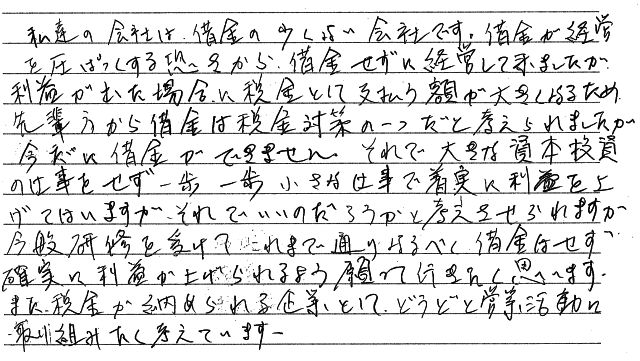 私達の会社は、借金の少くない会社です。借金が経営
を圧ぱくする恐しさから、借金せずに経営して来ましたが
利益が出た場合に税金として支払う額が大きくなるため
先輩方から借金は税金対策の一つだと考えられましたが
今だに借金ができません。それで大きな資本投資
の仕事をせず一歩一歩小さな仕事で着実に利益を上
げてはいますが、それでいいのだろうかと考えさせられますが
今般研修を受けてこれまで通りなるべく借金はせず
確実に利益が上げられるよう願って行きたく思います。
また、税金が納められる企業として、どうどうと営業活動に
取り組みたく考えています。